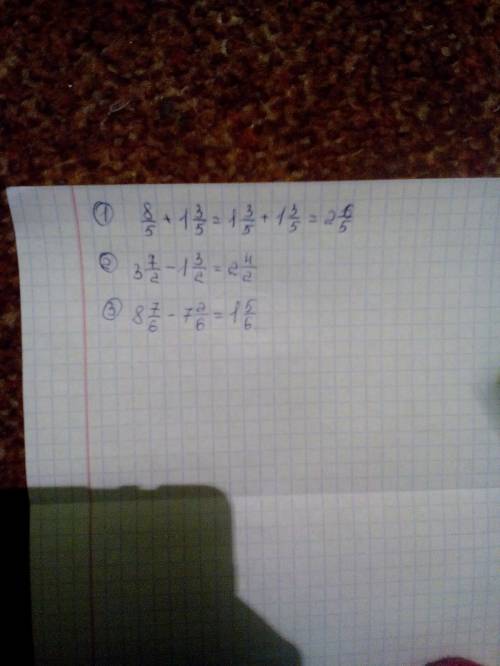 ① 8/5 + 1 3/5 = 1 3/5 + 1 3/5 = 2 6/5
② 3 7/2 - 1 3/2 = 2 4/2
③ 8 7/6 - 7 2/6 = 1 5/6